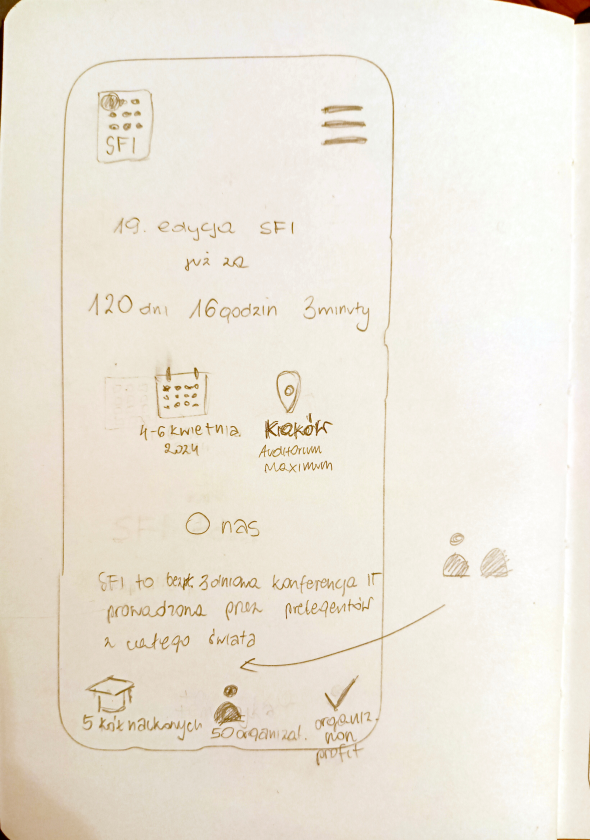 SFI
19. edycja SFI
już za
120 dni 16 godzin 3 minuty
4-6 kwietnia
2024
Kraków
Auditorium
Maximum
O nas
SFI to bezpł. 3 dniowa konferencja IT
prowadzona przez prelegentów
z całego świata
5 kół naukowych
50 organizat.
organiz.
non
profit